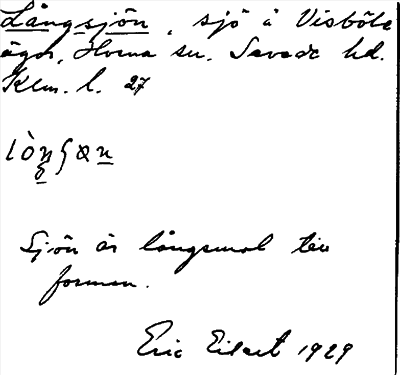 Långsjön, sjö å Visböle
ägor, Horna sn. Sevede hd.
Klm. l. 27
Sjön är långsmal till
formen.
Eric Elert 1929